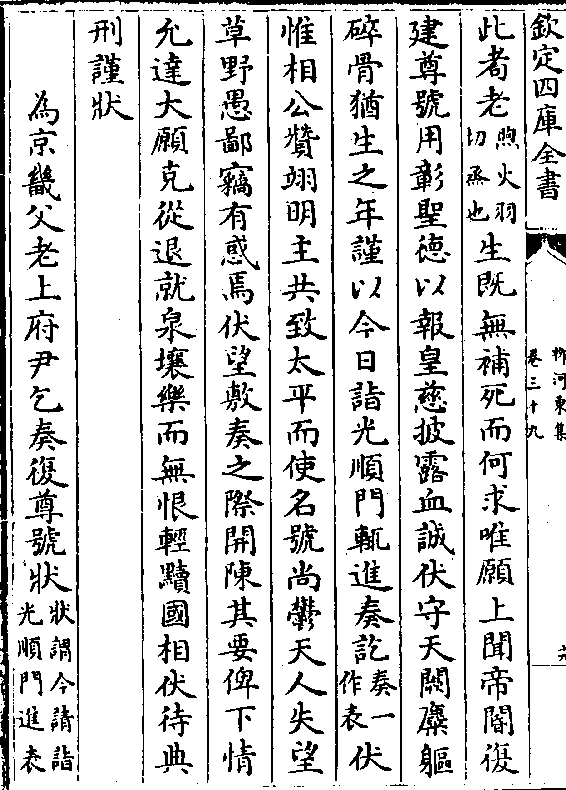 欽定四庫全書
柳河東集
卷三十九
此耆老煦火羽切烝也生既無補死而何求唯願上聞帝閽復
建尊號用彰聖德以報皇慈披露血誠伏守天闕麋軀
碎骨猶生之年謹以今日詣光順門輒進奏訖奏一作表伏
惟相公贊翊明主共致太平而使名號尚鬱天人失望
草野愚鄙竊有惑焉伏望敷奏之際開陳其要俾下情
允達大願克從退就泉壤樂而無恨輕黷國相伏待典
刑謹狀
為京畿父老上府尹乞奏復尊號狀狀謂今請詣光順門進表